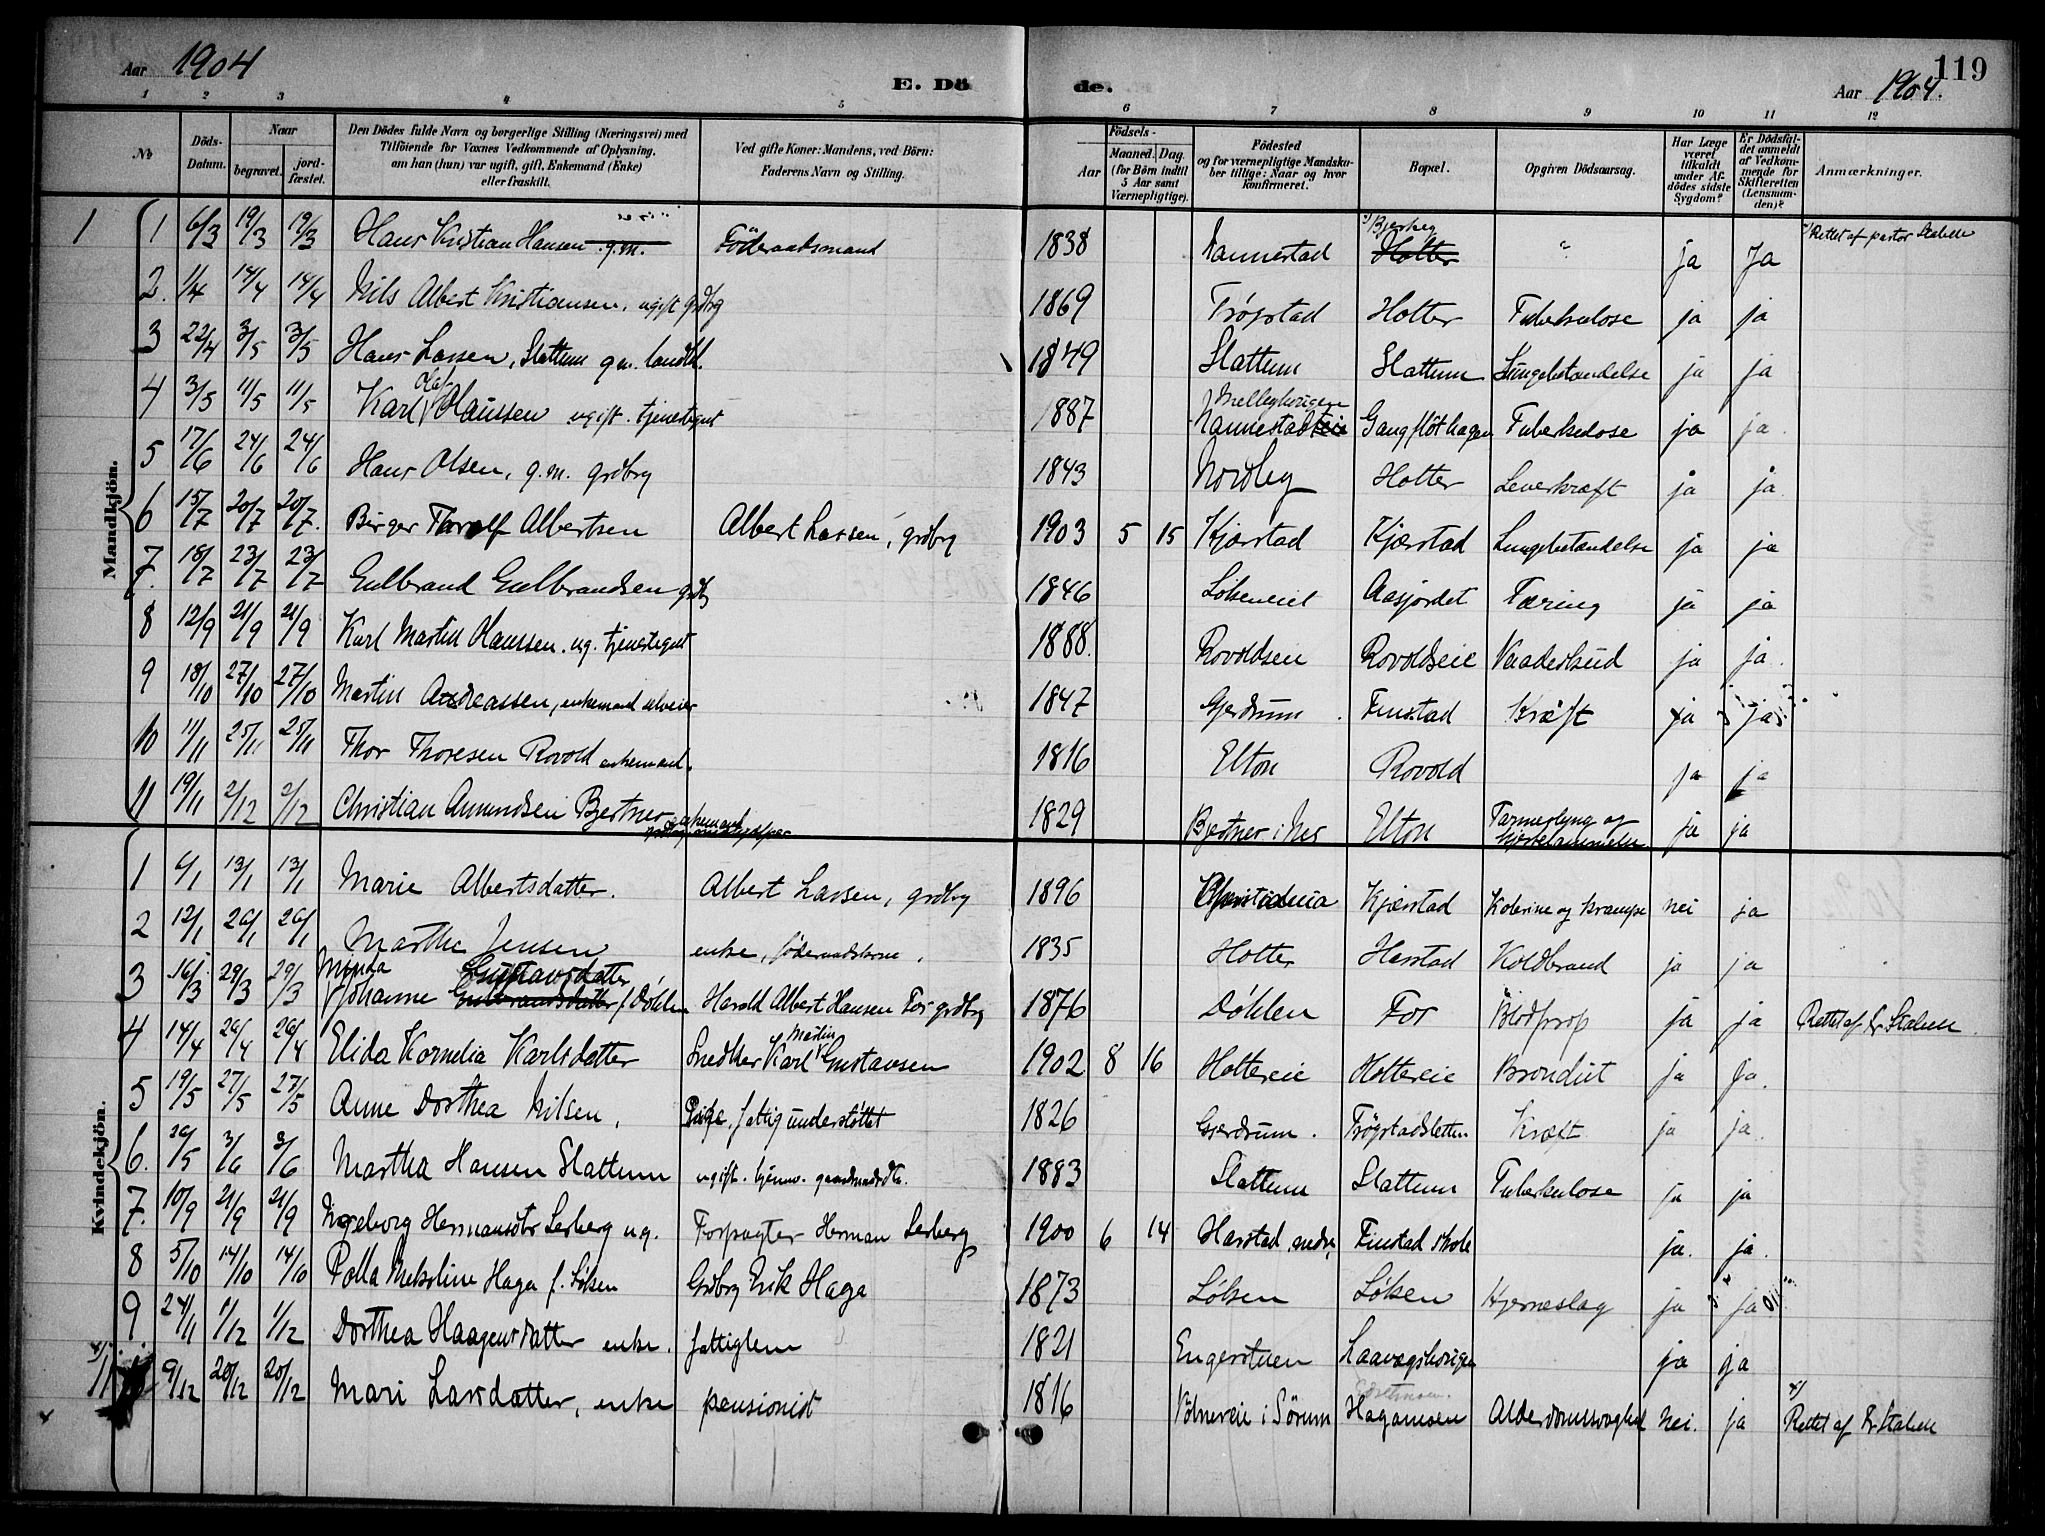 Aar 1904
E. Dö
de.
119
Aar 1904.
1 2 3 4 5 6 7 8 9 10 11 12
No
Döds-Datum.
Naar
begravet.
jord-fæstet.
Den Dödes fulde Navn og borgerlige Stilling (Næringsvei) med
Tilföiende for Voxnes Vedkommende af Oplysning,
om han (hun) var ugift, gift, Enkemand (Enke)
eller fraskilt.
Ved gifte Koner: Mandens, ved Börn:
Faderens Navn og Stilling.
Födsels-
Aar
Maaned. Dag.
(for Börn indtil
5 Aar samt
Værnepligtige).
Födested
og for værnepligtige Mandsku-
ber tillige: Naar og hvor
konfirmeret.
Bopæl.
Opgiven Dödsaarsag.
Har Læge
været
tilkaldt
under Af-
dödes sidste
Sygdom?
Er Dödsfal-
det anmeldt
af Vedkom-
mende for
Skifteretten
(Lensman-
den)?
Anmærkninger.
Mandkjön.
1 1 6/3 19/3 19/3 Hans Kristian Hansen g.m. Föderaadsmand 1838 Nannestad Bjerkey Holter " ja Ja Rettet af pastor Stabell
2. 1/4 14/4 14/4 Nils Albert Kristiansen, ugift grdbrg 1869 Trøgstad Holter Tuberkulose ja ja
3 22/4 3/5 3/5 Hans Larsen, Slattum g.m. landh. 1849 Slattum Slattum Lungebetændelse ja ja
4 3/5 11/5 11/5 Karl Olaf Hanssen ugift. tjenestegut 1887 Nannestad Gangflöthagen Tuberkulose ja ja.
5 17/6 24/6 24/6 Hans Olsen, g.m. grdbrg 1843 Nordby Holter Leverkræft ja ja.
6 15/7 20/7 20/7. Birger Thorolf Albertsen Albert Larsen, grdbrg 1903 5 15 Kjærstad Kjærstad Lungebetændelse ja ja
7. 18/7 23/7 23/7 Gulbrand Gulbrandsen grdb 1846 Løkeneiet Aasjordet Tæring ja ja
8 12/9 21/9 21/9 Karl Martin Hanssen. ug. tjenestegut 1888. Rovoldsen Rovoldseie Vaadeskud ja ja.
9 18/10 27/10 27/10 Martin Andreassen, enkemand selveier 1847 Gjerdrum. Finstad Kræft ja ja
10 11/11 25/11 25/11 Thor Thoresen Rovold enkemand. 1816 Elton Rovold ja ja
11 19/11 2/12 2/12 Christian Amundsen Bjertner enkemand 1829 Bjertner i Nes Elton Tarmeslyng og hjertelammelse ja ja
Kvindekjön.
1 6/1 13/1 13/1 Marie Albertsdatter. Albert Larsen, grdbrg 1896 Christiania Kjærstad Kolerine og krampe nei ja
2 12/1 26/1 26/1 Marthe Jensen enke, føderaadskone. 1835 Holter Harstad Koldbrand ja ja
3 16/3 29/3 29/3 Minda Johanne Gustavsdatter Gulbrandsdatter f. Døhlen Harald Albert Hansen For grdbrg 1876 Døhlen For Blodprop ja ja Rettet af Dr Stabell.
4 14/4 26/4 26/4 Elida Kornelia Karlsdatter Snedker Karl Martin Gustavsen 1902 8 16 Holtereie Holtereie Bronchit ja ja.
5 19/5 27/5 27/5 Anne Dorthea Nilsen, Pige, fattigunderstøttet 1826 Gjerdrum. Trøgstadsletten Kræft ja ja.
6. 26/5 3/6 3/6 Martha Hansen Slattum ugift. hjemv. gaardmandsdtr. 1883 Slattum Slattum Tuberkulose ja ja
7. 10/9 21/9 21/9 Ingeborg Hermansdtr Lerberg ug. Forpagter Herman Lerberg 1900 6 14 Harstad, nedre Finstad skole ja. ja.
8 5/10 14/10 14/10 Polla Mekoline Haga f. Løken Grdbrg Erik Haga 1873 Løken Løken Hjerneslag ja ja
9 24/11 1/12 1/12 Dorthea Haagensdatter enke. fattiglem 1821 Engerstuen Laavegshougen ja ja
11 9/12 20/12 20/12 Mari Larsdatter, enke pensionist 1816 Völnereie i Sörum Hagamoen Alderdomssvaghed nei. ja Rettet af Dr Stabell